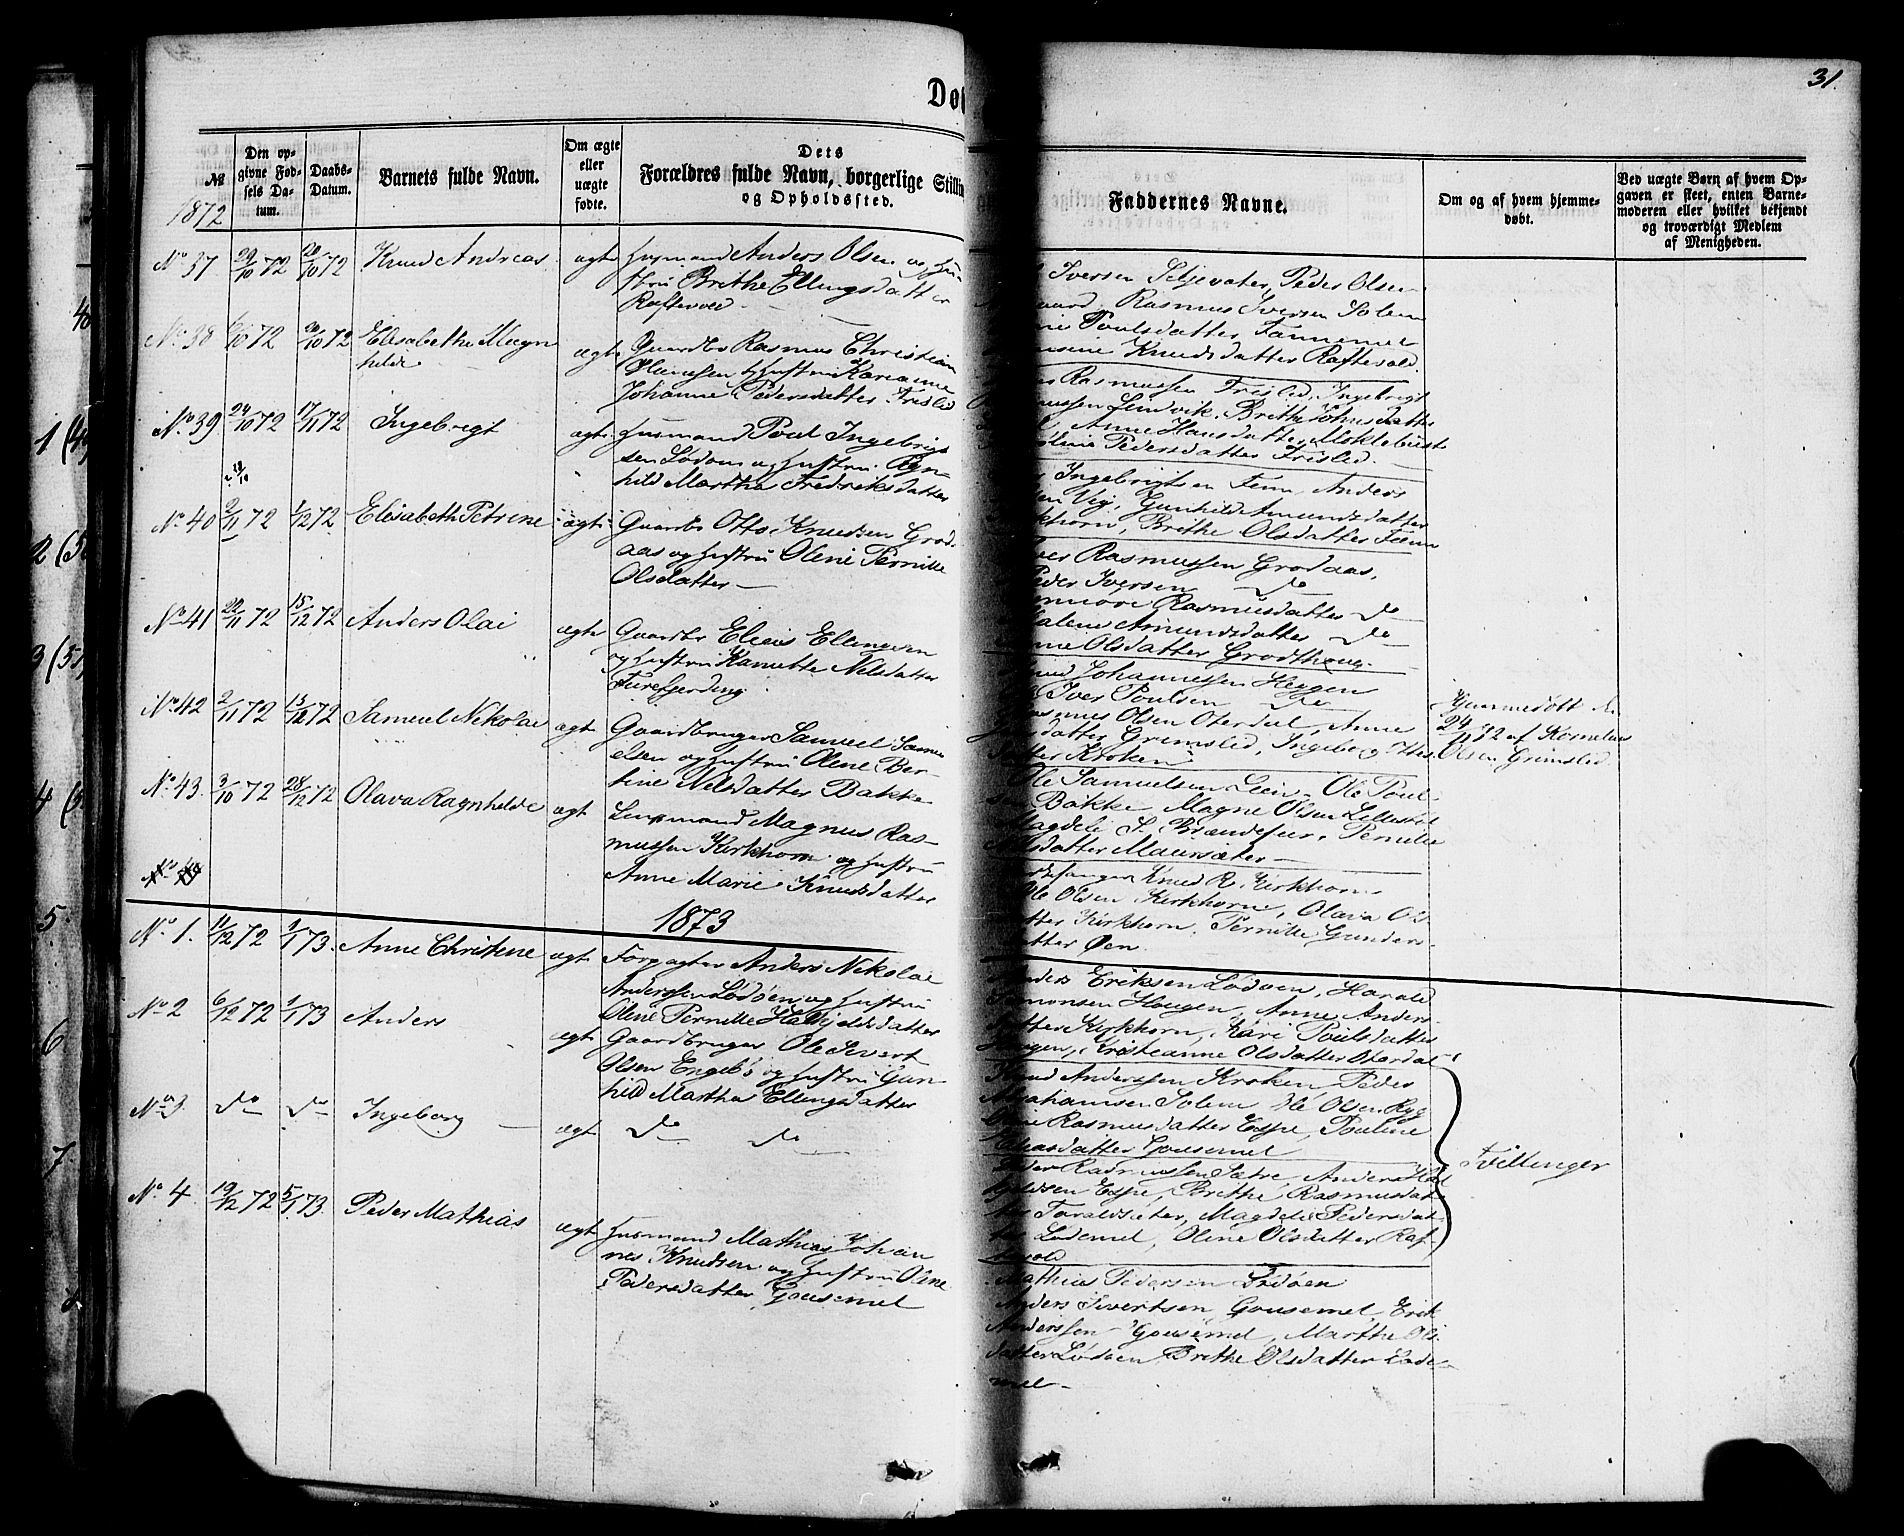 31.
Dø
№
1872
Den op-
givne Fød-
sels Da-
tum.
Daabs-
Datum.
Barnets fulde Navn.
Om ægte
eller
uægte
fødte.
Dets
Forældres fulde Navn, borgerlige Stilli
og Opholdssted.
Faddernes Navne.
Om og af hvem hjemme-
døbt.
Ved uægte Børn af hvem Op-
gaven er skeet, enten Barne-
moderen eller hvilket bekjendt
og troværdigt Medlem
af Menigheden.
No 37 29/10 72 20/10 72 Knud Andreas ægte Husmand Anders Olsen og Hu-
stru Brithe Ellingsdatter
Raftevold
Iversen Seljesæter, Peder Olsen
Rasmus Iversen Solem
Poulsdatter Tannemel
Knudsdatter Raftevold.
No 38 /10 72 20/10 72 Elisabethe Magn
hilde ægte Gaardbr Rasmus Christian
Olenussen & Hustru Karianne
Johanne Pedersdatter Frislid
Rasmussen Frislid, Ingebrigt
mussen Lendvik, Brithe Johnsdatter
Anne Hansdatter Møklebust
Pedersdatter Frislid.
No 39 24/10 72 17/11 72 Ingebrigt ægte Husmand Poul Ingebrigt
sen Lødøen og Hustru Ragn-
hild Martha Fredriksdatter
Ingebrigtsen Tenn, Anders
sen Vig, Gunhild Amundsdatter
Kirkhorn, Brithe Olsdatter
No 40 2/11 72 1/12 72 Elisabeth Petrine ægte Gaardbr Otto Knudsen Grod-
aas og Hustru Olene Pernille
Olsdatter
Iver Rasmussen Grodaas,
Peder Iversen Do
Rasmusdatter Do
Amundsdatter Do
Olsdatter Grodthoug
No 41 22/11 72 15/12 72 Anders Olai ægte Gaardbr Elias Ellingsen
og Hustru Kanutte Nilsdatter
Furefjerding
Johannessen Heggen
Iver Poulsen Do
Olsen Oterdal, Anne
datter Grimslid, Ingeborg Itter
datter Kroken
Hjemmedøbt den
24/11 72 af Kornelius
Olsen Grimslid
No 42 2/11 72 15/12 72 Samuel Nikolai ægt Gaardbruger Samuel Samu
elsen og Hustru Olene Ber-
tine Nilsdatter Bakke
Ole Samuelsen Leen, Ole Poul
sen Bakke, Magne Olsen Lillestøl
Magdeli S. Brændefur, Pernille
Nilsdatter Maursæter
No 43. 3/10 72 28/12 72 Olava Ragnhilde ægt Lensmand Magnus Ras-
mussen Kirkhorn og Hustru
Anne Marie Knudsdatter
Knud R. Kirkhorn
Ole Olsen Kirkhorn, Olava Ols
datter Kirkhorn, Pernille Gunders-
datter Øen.
1873
No 1. 11/12 72 1/1 73. Anne Christine ægt Forpagter Anders Nikolai
Anderssen Lødøen og Hustru
Olene Pernille Halkjeldsdatter
Anders Eriksen Lødøen, Harald
Simonsen Hougen, Anne Anders
datter Kirkhorn, Kari Poulsdatter
Hougen, Kristianne Olsdatter Oterdal
No 2 6/12 72 1/1 73 Anders ægt Gaardbruger Ole Sivert
Olsen Engebø og Hustru Gun
hild Martha Ellingsdatter
Knud Anderssen Kroken, Peder
Abrahamsen Solem, Ole Olsen Ryg
Rasmusdatter Espe, Pouline
Eliasdatter Gousemel
Tvillinger
No 3. Do Do Ingeborg ægt Do Do
Peder Rasmussen Sætre, Anders Hal
kjeldsen Espe, Brithe Rasmusdat
ter Taraldsæter, Magdeli Pedersdat
ter Lødemel, Oline Olsdatter Raf-
tevold
No 4. 19/12 72 5/1 73. Peder Mathias ægt Husmand Mathias Johan
nes Knudsen og Hustru Oline
Pedersdatter Gousemel
Mathias Pedersen Lødøen
Anders Sivertsen Gousemel, Erik
Anderssen Gousemel, Marthe Ols
datter Lødøen, Brithe Olsdatter Løde-
mel